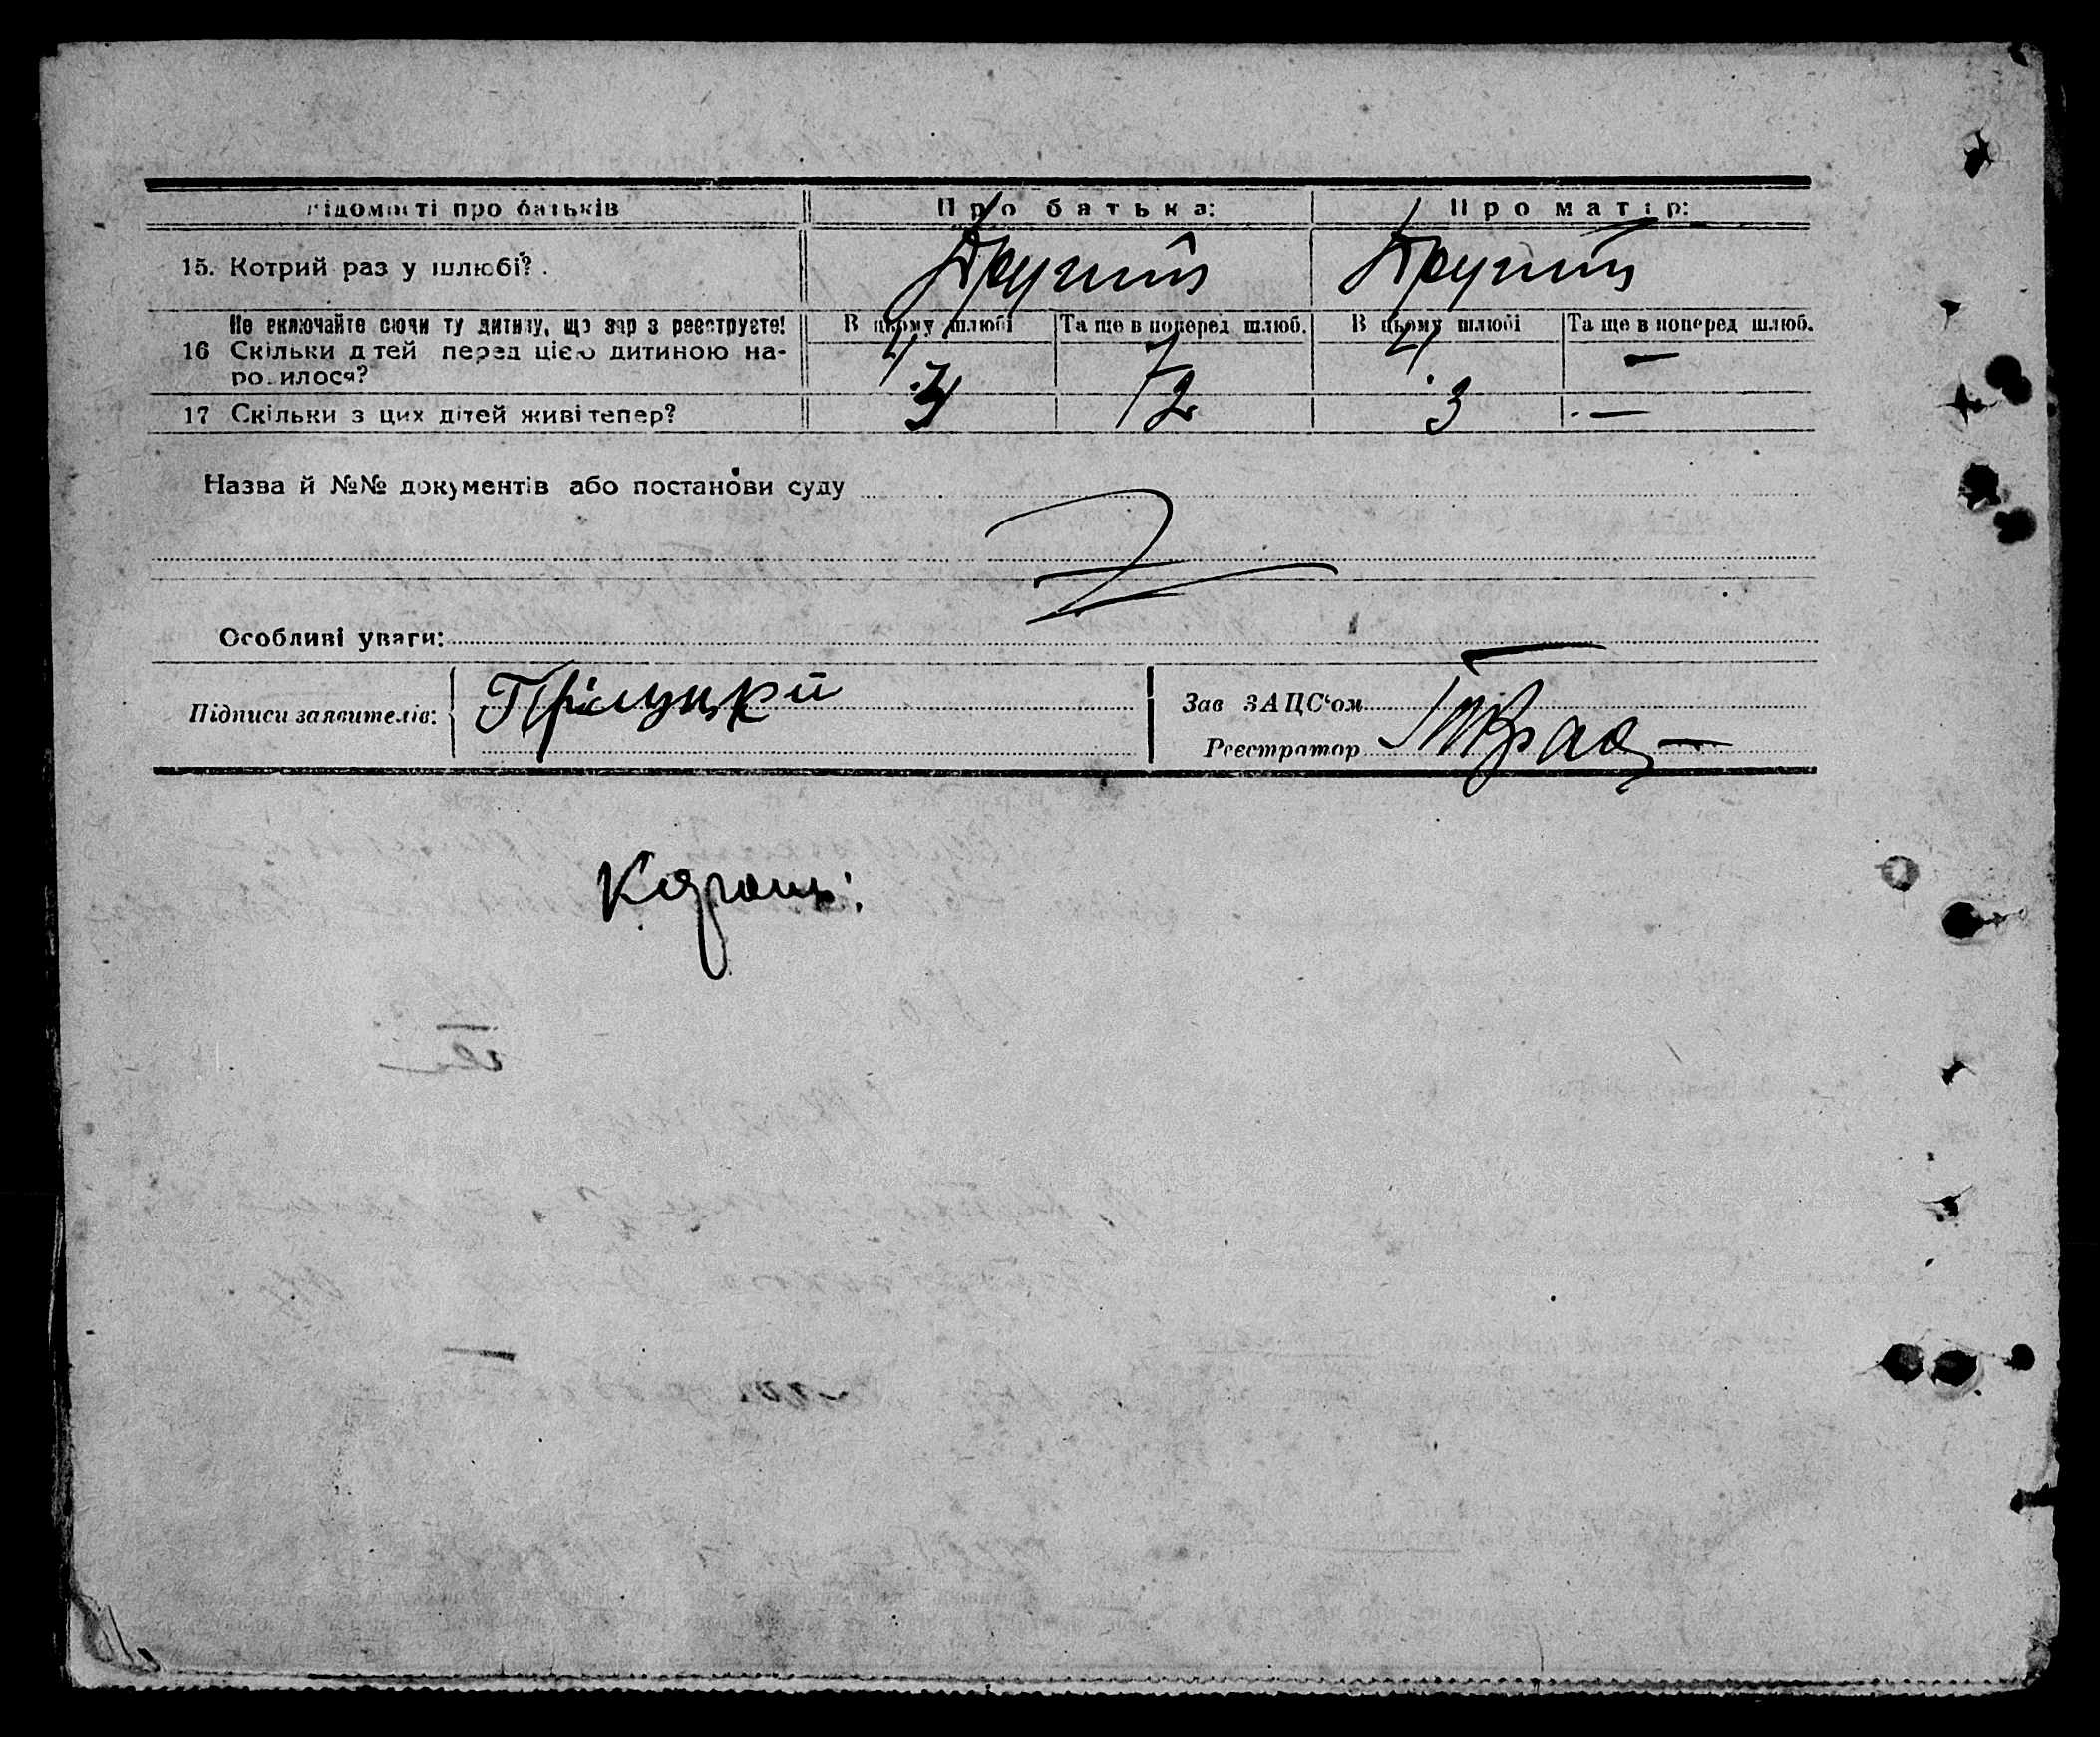 відомості про батьків Про батька: Про матір:
15. Котрий раз у шлюбі? Другий Другий
Не включайте сюди ту дитину, що зараз реєструєте! В цьому шлюбі Та ще в поперед шлюб. В цьому шлюбі Та ще в поперед шлюб.
16 Скільки дітей перед цією дитиною на-
родилося? 4 4 —
17 Скільки з цих дітей живі тепер? 3 2 3 —
Назва й №№ документів або постанови суду
Особливі уваги: —
Підписи заявителів: Прілуцкй Зав ЗАЦС‘ом
Реєстратор